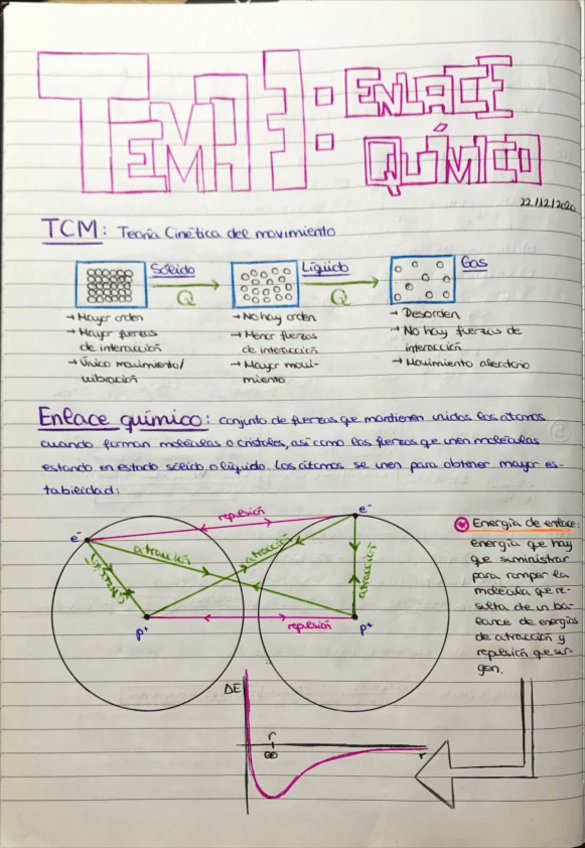 TEMA 3: ENLACE
QUÍMICO
22/12/2020
TCM: Teoría Cinética del movimiento
Sólido
Q
Líquido
Q
Gas
→ Mayor orden
→ Mayor fuerzas
de interacción
→ Único movimiento/
vibración
→ No hay orden
→ Menor fuerzas
de interacción
→ Mayor movi-
miento
→ Desorden
→ No hay fuerzas de
interacción
→ Movimiento aleatorio
Enlace químico: conjunto de fuerzas que mantienen unidos los átomos
cuando forman moléculas o cristales, así como las fuerzas que unen moléculas
estando en estado sólido o líquido. Los átomos se unen para obtener mayor es-
tabilidad:
repulsión
e⁻
e⁻
atracción
atracción
atracción
atracción
repulsión
p⁺
p⁺
Energía de enlace:
energía que hay
que suministrar
para romper la
molécula que re-
sulta de un ba-
lance de energías
de atracción y
repulsión que sur-
gen.
ΔE
r
r